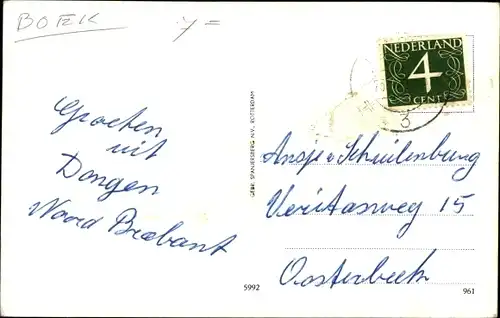 BOEK
y =
NEDERLAND
4
CENT
3
Groeten
uit
Dongen
Noord Brabant
GEBR. SPANJERSBERG N.V., ROTTERDAM
Schuilenburg
Veritasweg 15
Oosterbeek
5992
961